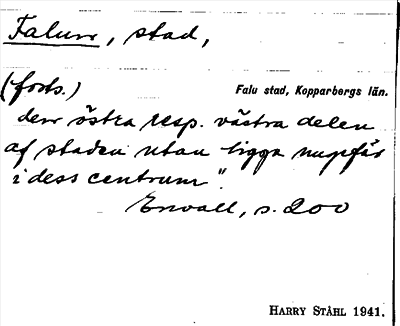 Falun, stad,
(forts.)
Falu stad, Kopparbergs län.
den östra resp. västra delen
af staden utan ligga ungefär
i dess centrum".
Envall, s. 200
HARRY STÅHL 1941.